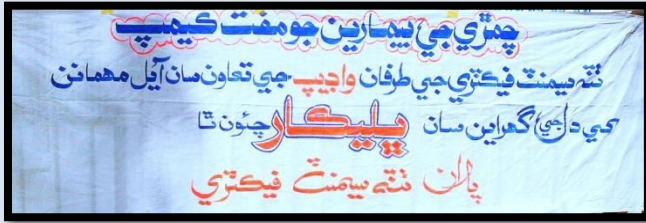 چمڙي جي بيمارين جو مفت ڪيمپ
ٺٽه سيمنٽ فيڪٽري جي طرفان واڊيپ جي تعاون سان آيل مهمانن
کي دل جي گهراين سان ڀليڪار چئون ٿا
پاران ٺٽه سيمنٽ فيڪٽري